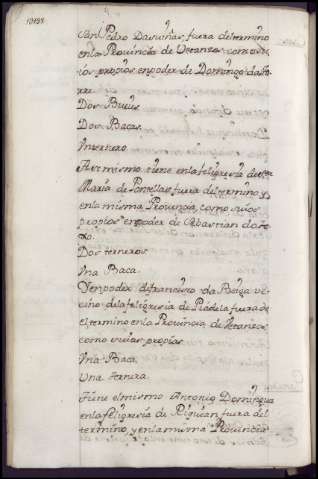 San Pedro Dasviñas fuera del termino
en la Provincia de Vetanzos como su
ios propios en poder de Domingo da To
rre
Dos Bueies
Dos Bacas
Un ternero
Asimismo tiene en la feligresia de Sta
Maria de Pontellas fuera del termino y
en la misma Provincia, como suios
propios en poder de Sebastian do
xo.
Dos terneros
Una Baca.
Y en poder de francisco da Braga ve
cino de la feligresia de Piadela fuera de
el termino en la Provincia de Vetanzos
como suias propias
Una Baca
Una ternera.
tiene el mismo Antonio Domingua
en la feligresia de Biguian fuera del
termino, y en la misma Provincia